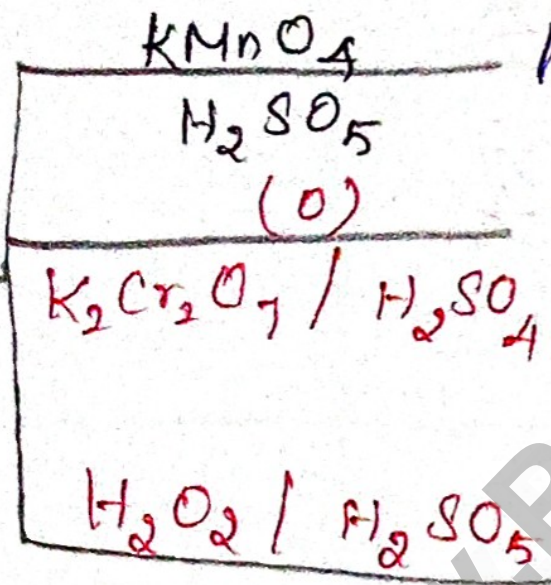 KMnO₄
H₂SO₅
(O)
K₂Cr₂O₇ / H₂SO₄
H₂O₂ / H₂SO₅